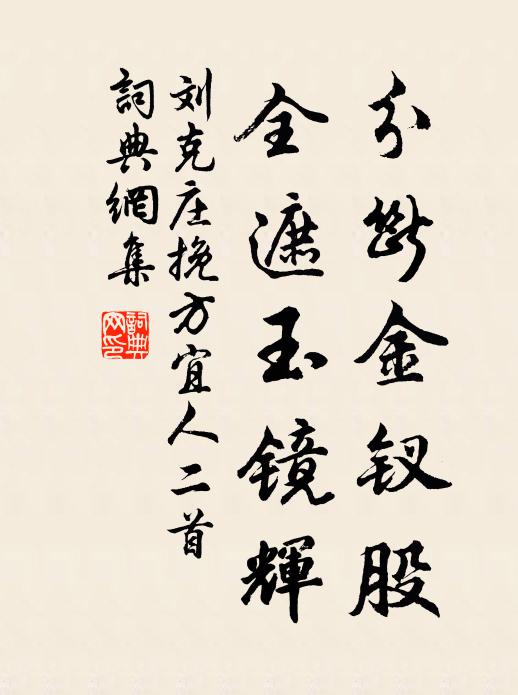 分断金钗股
全遮玉镜輝
刘克庄挽方宜人二首
詞典網集
詞典網印